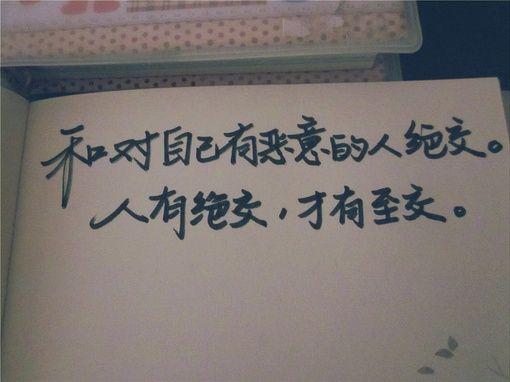 和对自己有恶意的人绝交。
人有绝交，才有至交。